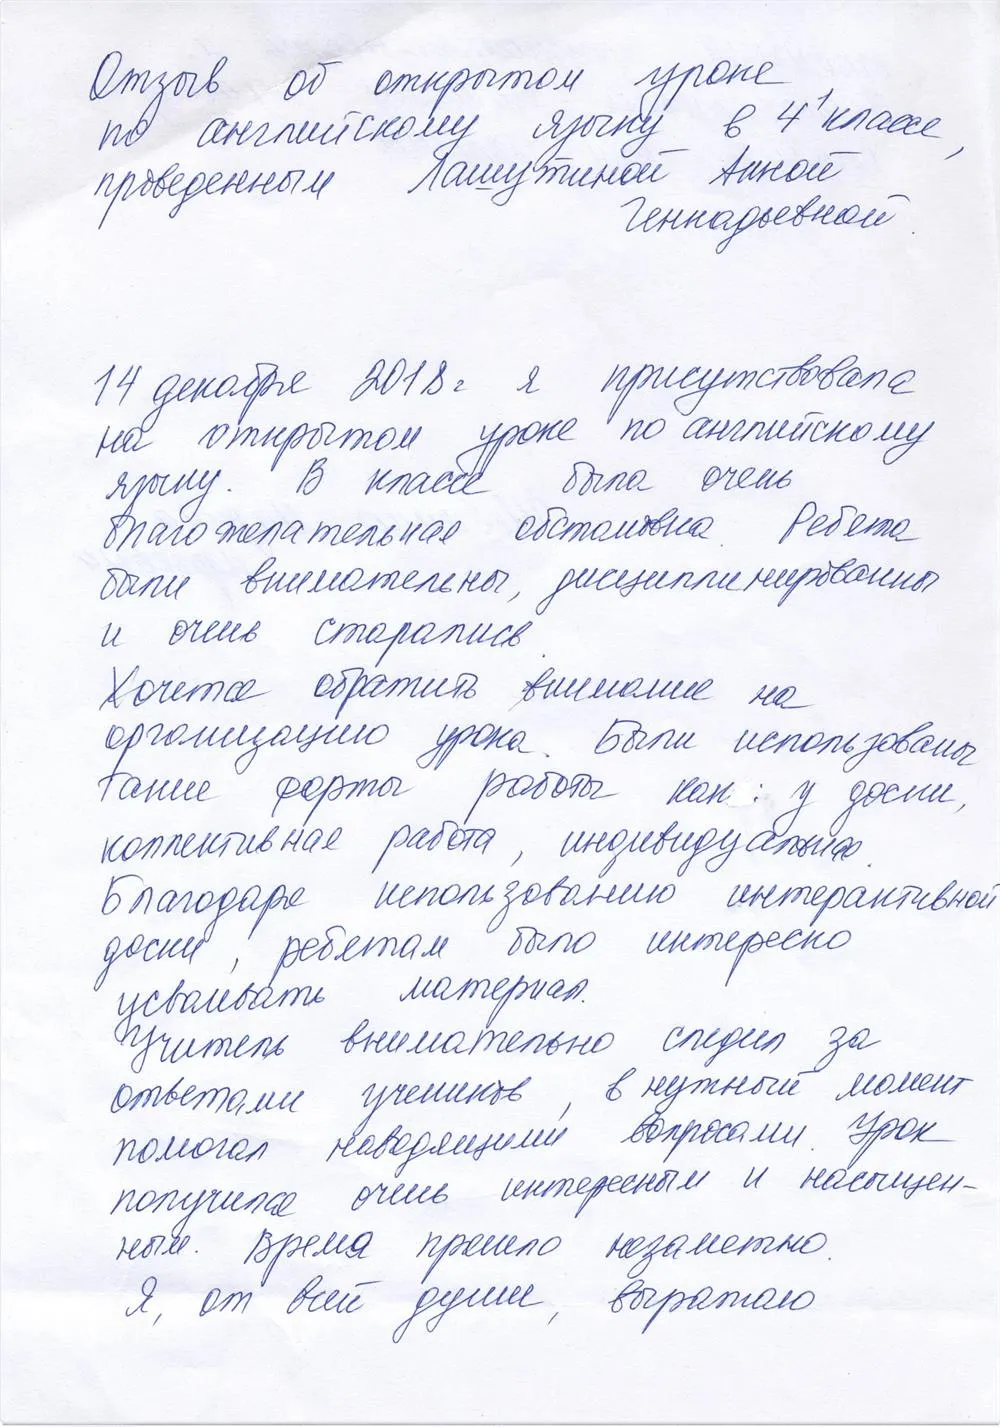 Отзыв об открытом уроке
по английскому языку в 4¹ классе,
проведенным Лашутиной Анной
Геннадьевной.
14 декабря 2018 г я присутствовала
на открытом уроке по английскому
языку. В классе была очень
благожелательная обстановка. Ребята
были внимательны, дисциплинированны
и очень старались.
Хочется обратить внимание на
организацию урока. Были использованы
такие формы работы как: у доски,
коллективная работа, индивидуальная.
Благодаря использованию интерактивной
доски, ребятам было интересно
усваивать материал.
Учитель внимательно следил за
ответами учеников, в нужный момент
помогал наводящими вопросами. Урок
получился очень интересным и насыщен-
ным. Время прошло незаметно.
Я, от всей души, выражаю